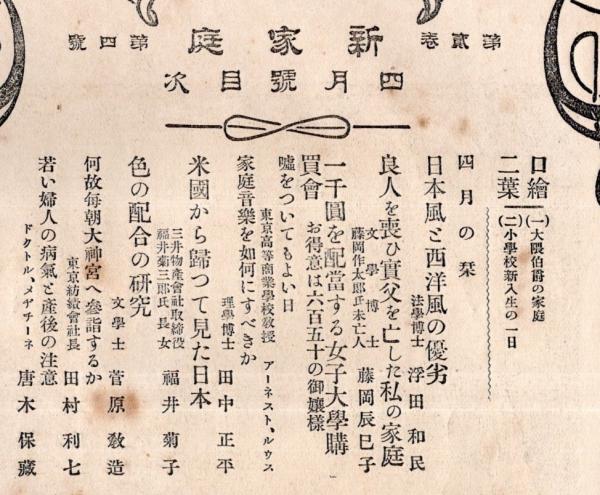 新家庭
第貳卷
第四號
四月號目次
口繪二葉
(一)大隈伯爵の家庭
(二)小學校新入生の一日
四月の栞
日本風と西洋風の優劣
法學博士 浮田和民
良人を喪ひ實父を亡した私の家庭
文學博士
藤岡作太郎氏未亡人 藤岡辰巳子
一千圓を配當する女子大學購買會
お得意は六百五十の御孃樣
噓をついてもよい日
東京高等商業學校敎授 アーネスト、ルウス
家庭音樂を如何にすべきか
理學博士 田中正平
米國から歸つて見た日本
三井物產會社取締役
福井菊三郎氏長女 福井菊子
色の配合の硏究
文學士 菅原敎造
何故每朝大神宮へ參詣するか
東京紡績會社長 田村利七
若い婦人の病氣と產後の注意
ドクトル、メヂチーネ 唐木保藏